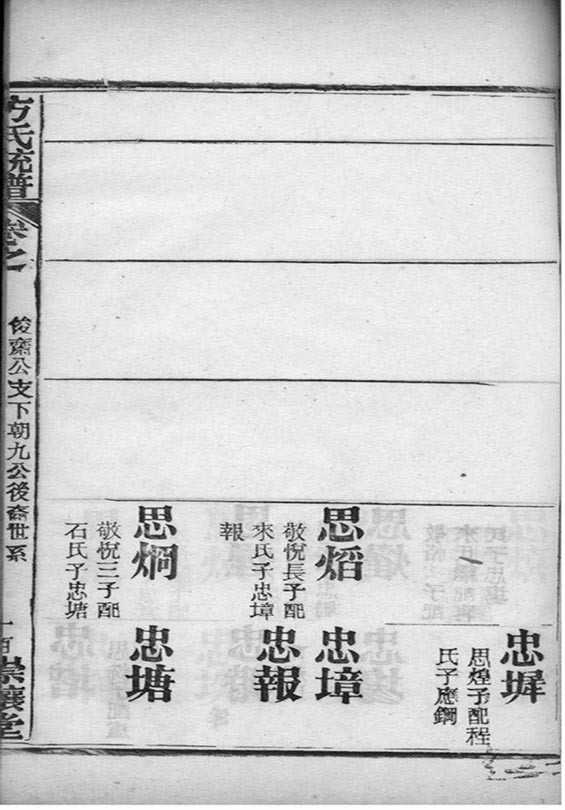 忠墀
思煌子配程
氏子應鋼
思熖
敬悅長子配
來氏子忠墇
報
忠墇
忠報
思炯
敬悅三子配
石氏子忠塘
忠塘
方氏統譜
卷之
俊齋公支下朝九公後裔世系
一百
崇讓堂